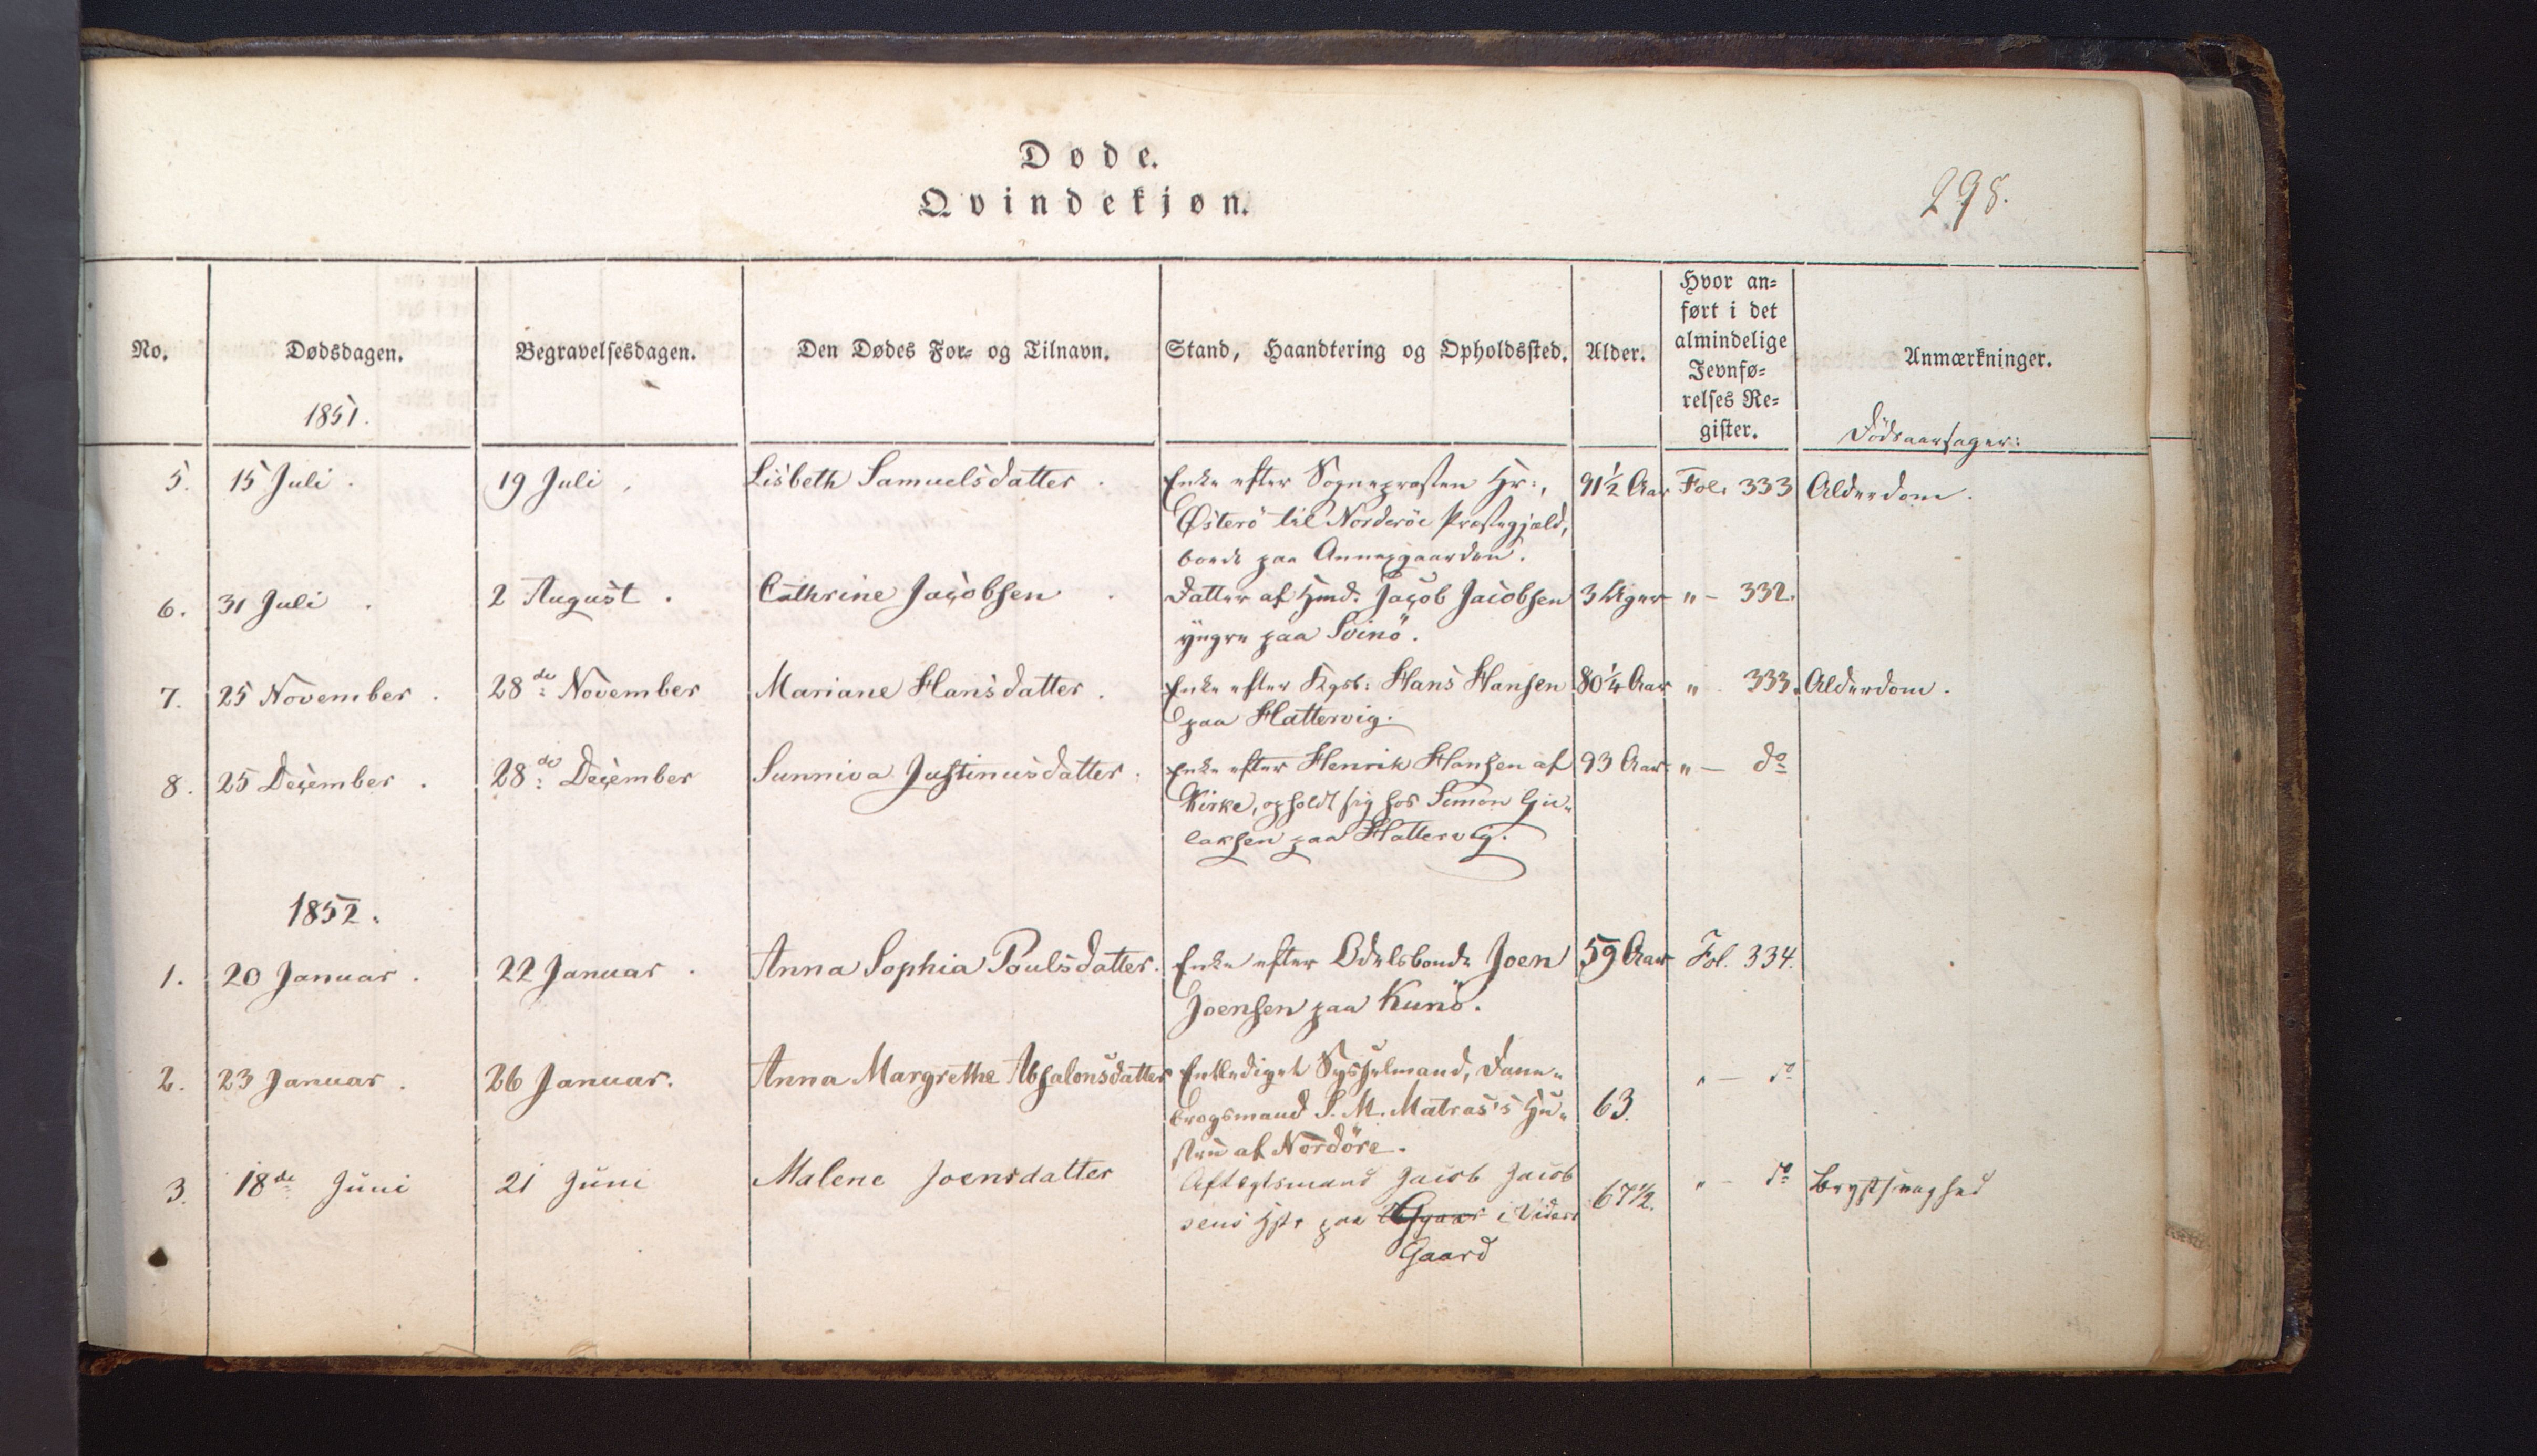 Døde.
Qvindekjøn.
298.
No.
Dødsdagen.
1851.
Begravelsesdagen.
Den Dødes For- og Tilnavn.
Stand, Haandtering og Opholdssted.
Alder.
Hvor an-
ført i det
almindelige
Jevnfø-
relses Re-
gister.
Anmærkninger.
Dödsaarsager:
5. 15 Juli. 19 Juli. Lisbeth Samuelsdatter. Enke efter Sognepræsten Hr:, 91½ Aar Fol. 333 Alderdom.
Østerö til Norderöe Præstegjæld,
boede paa Annexgaarden.
6. 31 Juli. 2 August. Cathrine Jacobsen. Datter af Hmd. Jacob Jacobsen 3 Uger " – 332.
yngre paa Svinö.
7. 25 November. 28de November Mariane Hansdatter. Enke efter Kgsb: Hans Hansen 80¼ Aar " 333. Alderdom.
paa Hattervig.
8. 25 December. 28de December Sunniva Justinusdatter. Enke efter Henrik Hansen af 93 Aar " – do
Kirke, opholdt sig hos Simon
paa Hattervig.
1852.
1. 20 Januar. 22 Januar. Anna Sophia Poulsdatter. Enke efter Odelsbonde Joen 59 Aar Fol. 334.
Joensen paa Kunö.
2. 23 Januar. 26 Januar. Anna Margrethe Absalonsdatter Entlediget Sysselmand, Danne- " – do
brogsmand S. M. Matras's Hu- 63.
stru af Nordöre.
3. 18de Juni 21 Juni Malene Joensdatter Aftægtsmand Jacob Jacob " – do Brystsvaghed
sens Hstr paa i Videre 67½.
Gaard